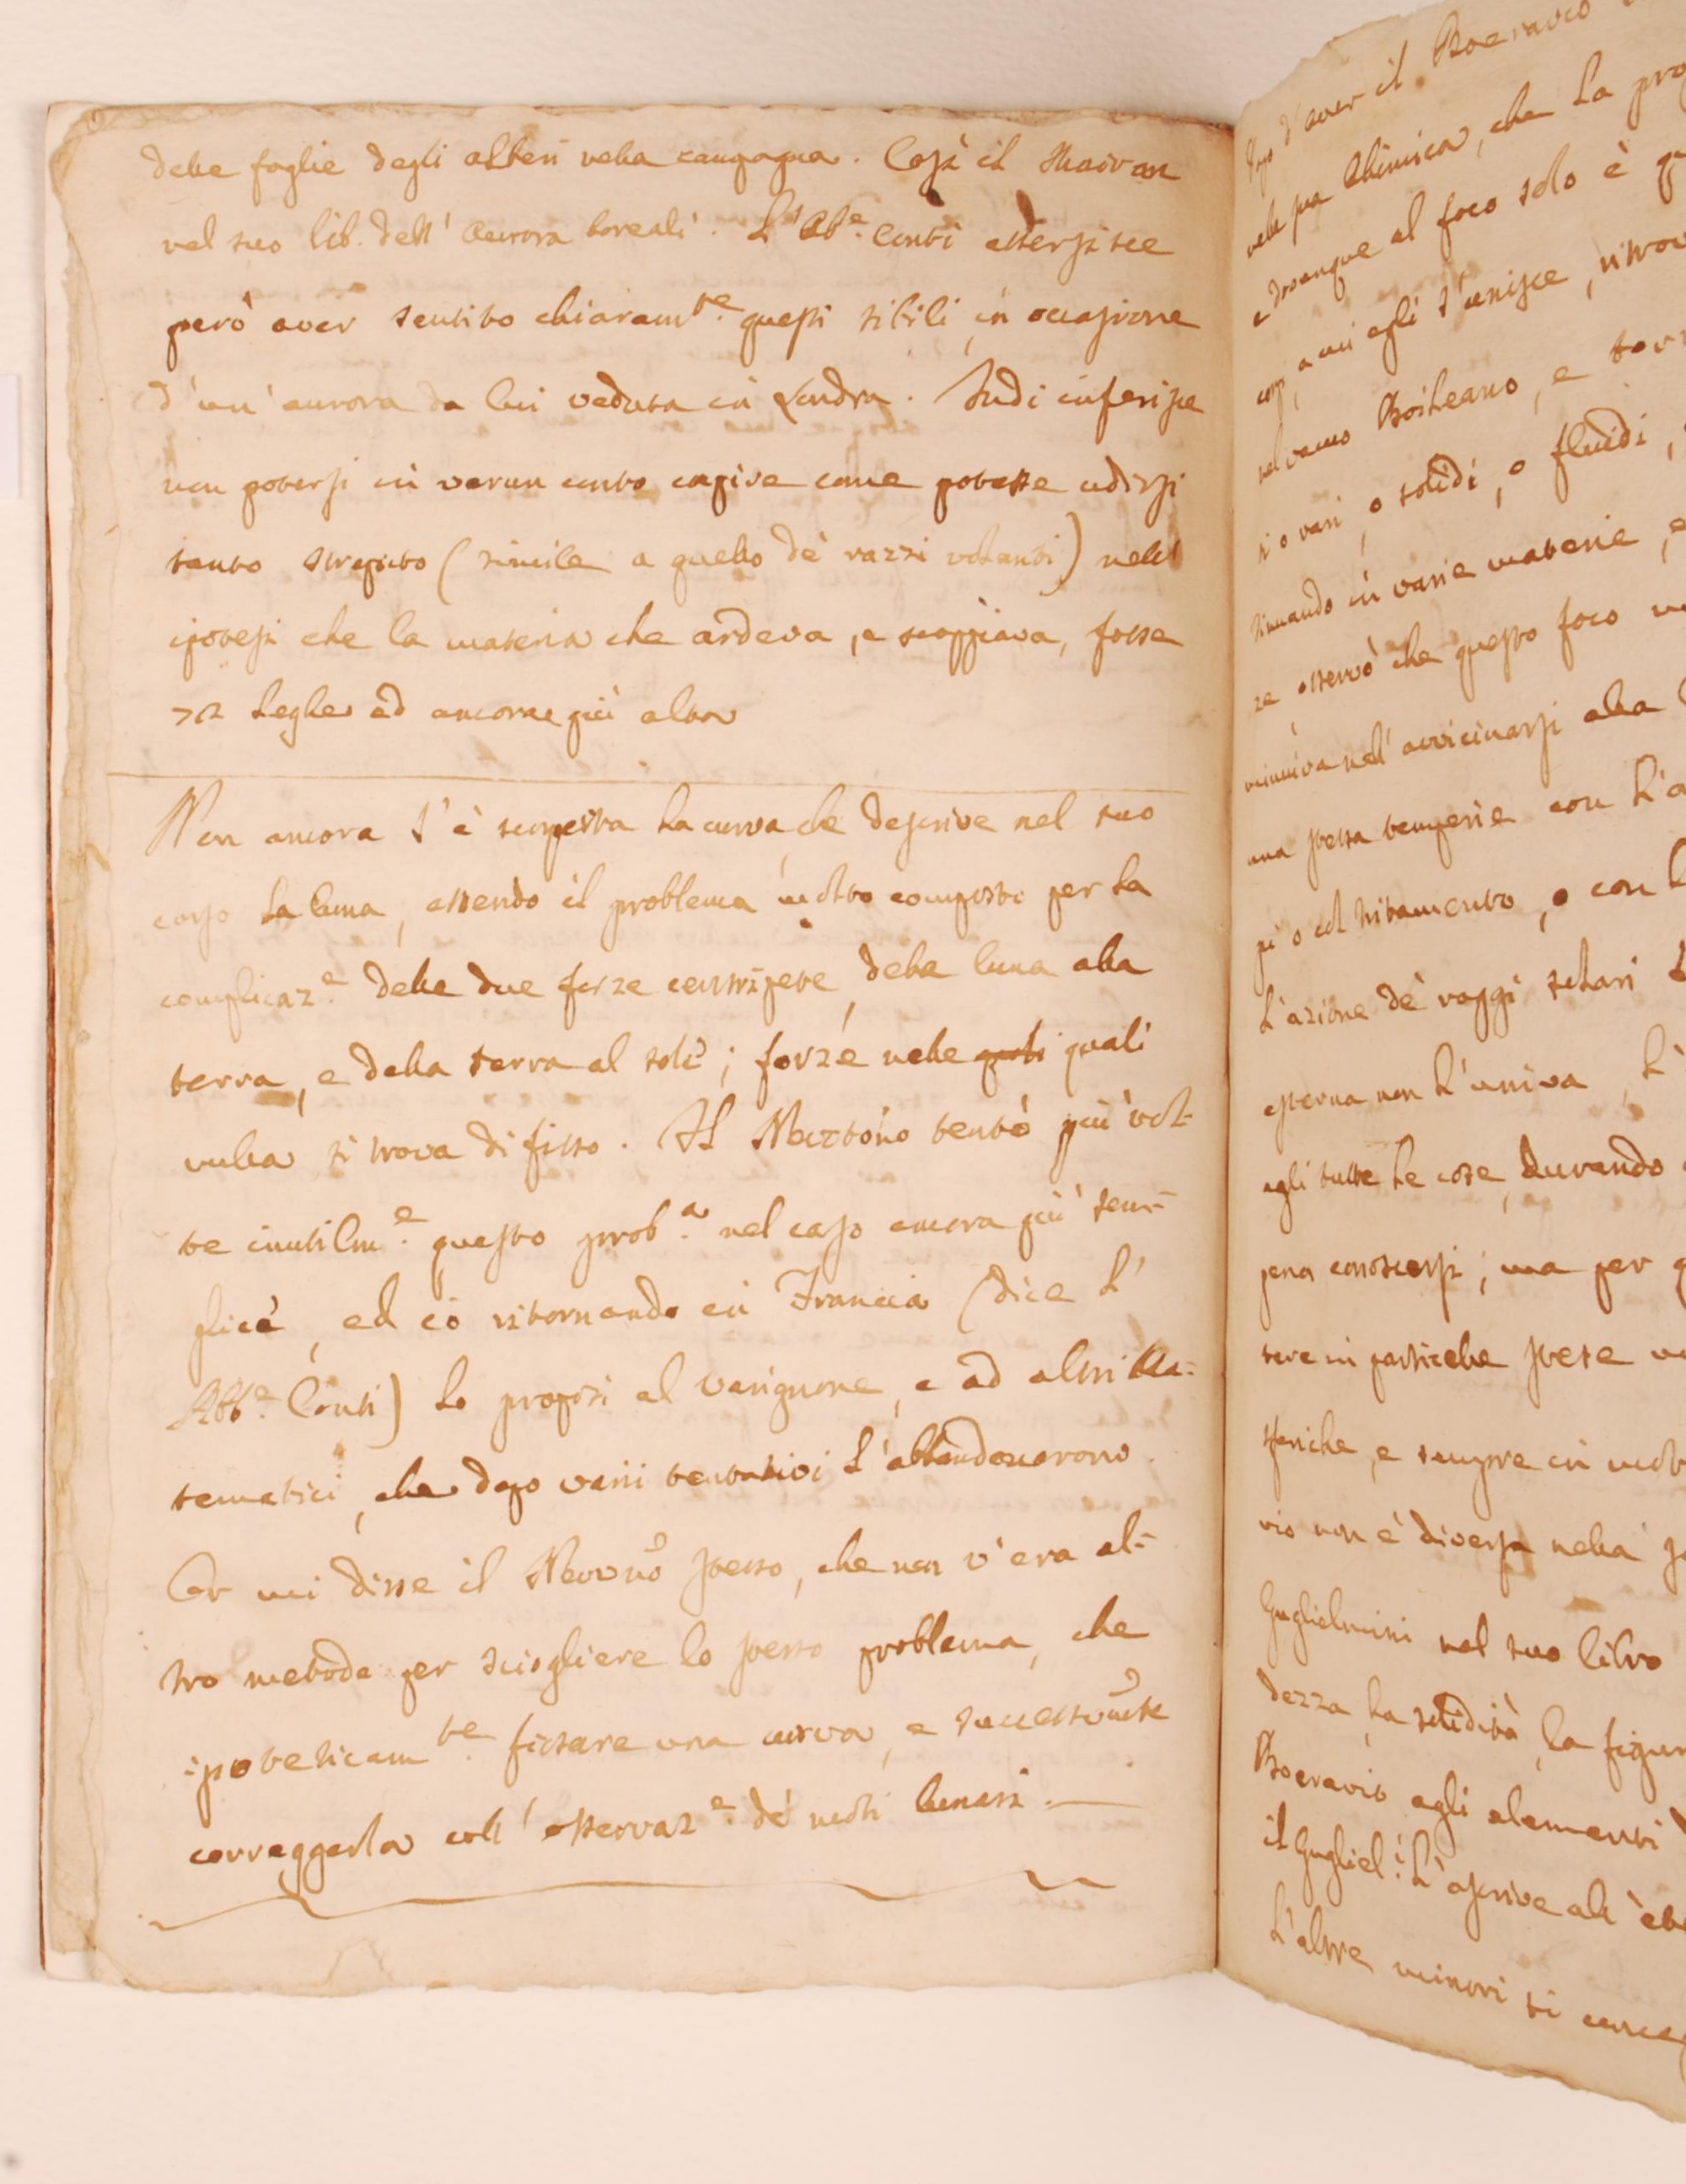 delle foglie degli alberi nella campagna. Così il Mairan
nel suo lib. dell' Aurora boreali. L'Ab.e Conti asserisce
però aver sentito chiaram.te questi sibili in occasione
d'un' aurora da lui veduta in Londra. Indi inferisce
non potersi in verun conto capire come potesse udirsi
tanto strepito (simile a quello de' razzi volanti) nell'
ipotesi che la materia che ardeva, e scoppiava, fosse
leghe ed ancora più alta
Non ancora s'è scoperta la curva, che descrive nel suo
corso la luna, essendo il problema molto composto per la
complicaz.e delle due forze centripete, della luna alla
terra, e della terra al sole; forze nelle quali
nulla si trova di fisso. Il Neutono tentò più vol-
te inutilm.e questo prob.a nel caso ancora più sem-
plice, ed io ritornando in Francia (dice l'
Abb.e Conti) lo proposi al Varignone, e ad altri Ma-
tematici, che dopo varii tentativi l'abbandonarono.
Or mi disse il stesso, che non v'era al-
tro metodo per sciogliere lo stesso problema, che
ipoteticam.te fissare una curva, e
correggerla coll' osservaz.e de' moti lunari.
dopo d'aver il Boeravio
nella sua Chimica, che la
e dovunque al foco solo è
corpi, a cui egli s'unisce,
nel vacuo Boileano, e
si o rari, o solidi, o fluidi,
in varie materie,
ze osservò che questo foco
nell' avvicinarsi alla
una stessa temperie con l'
o col tritamento, o con
L'azione de' raggi solari
esterna non l'univa,
egli tutte le cose, durando
pena conoscersi; ma per
in particelle
sferiche, e sempre in
vio non è diversa nella
Guglielmini nel suo libro
dezza, la solidità, la figur
Boeravio agli elementi
il Gugliel. L'ascrive all'
L'altre minori si